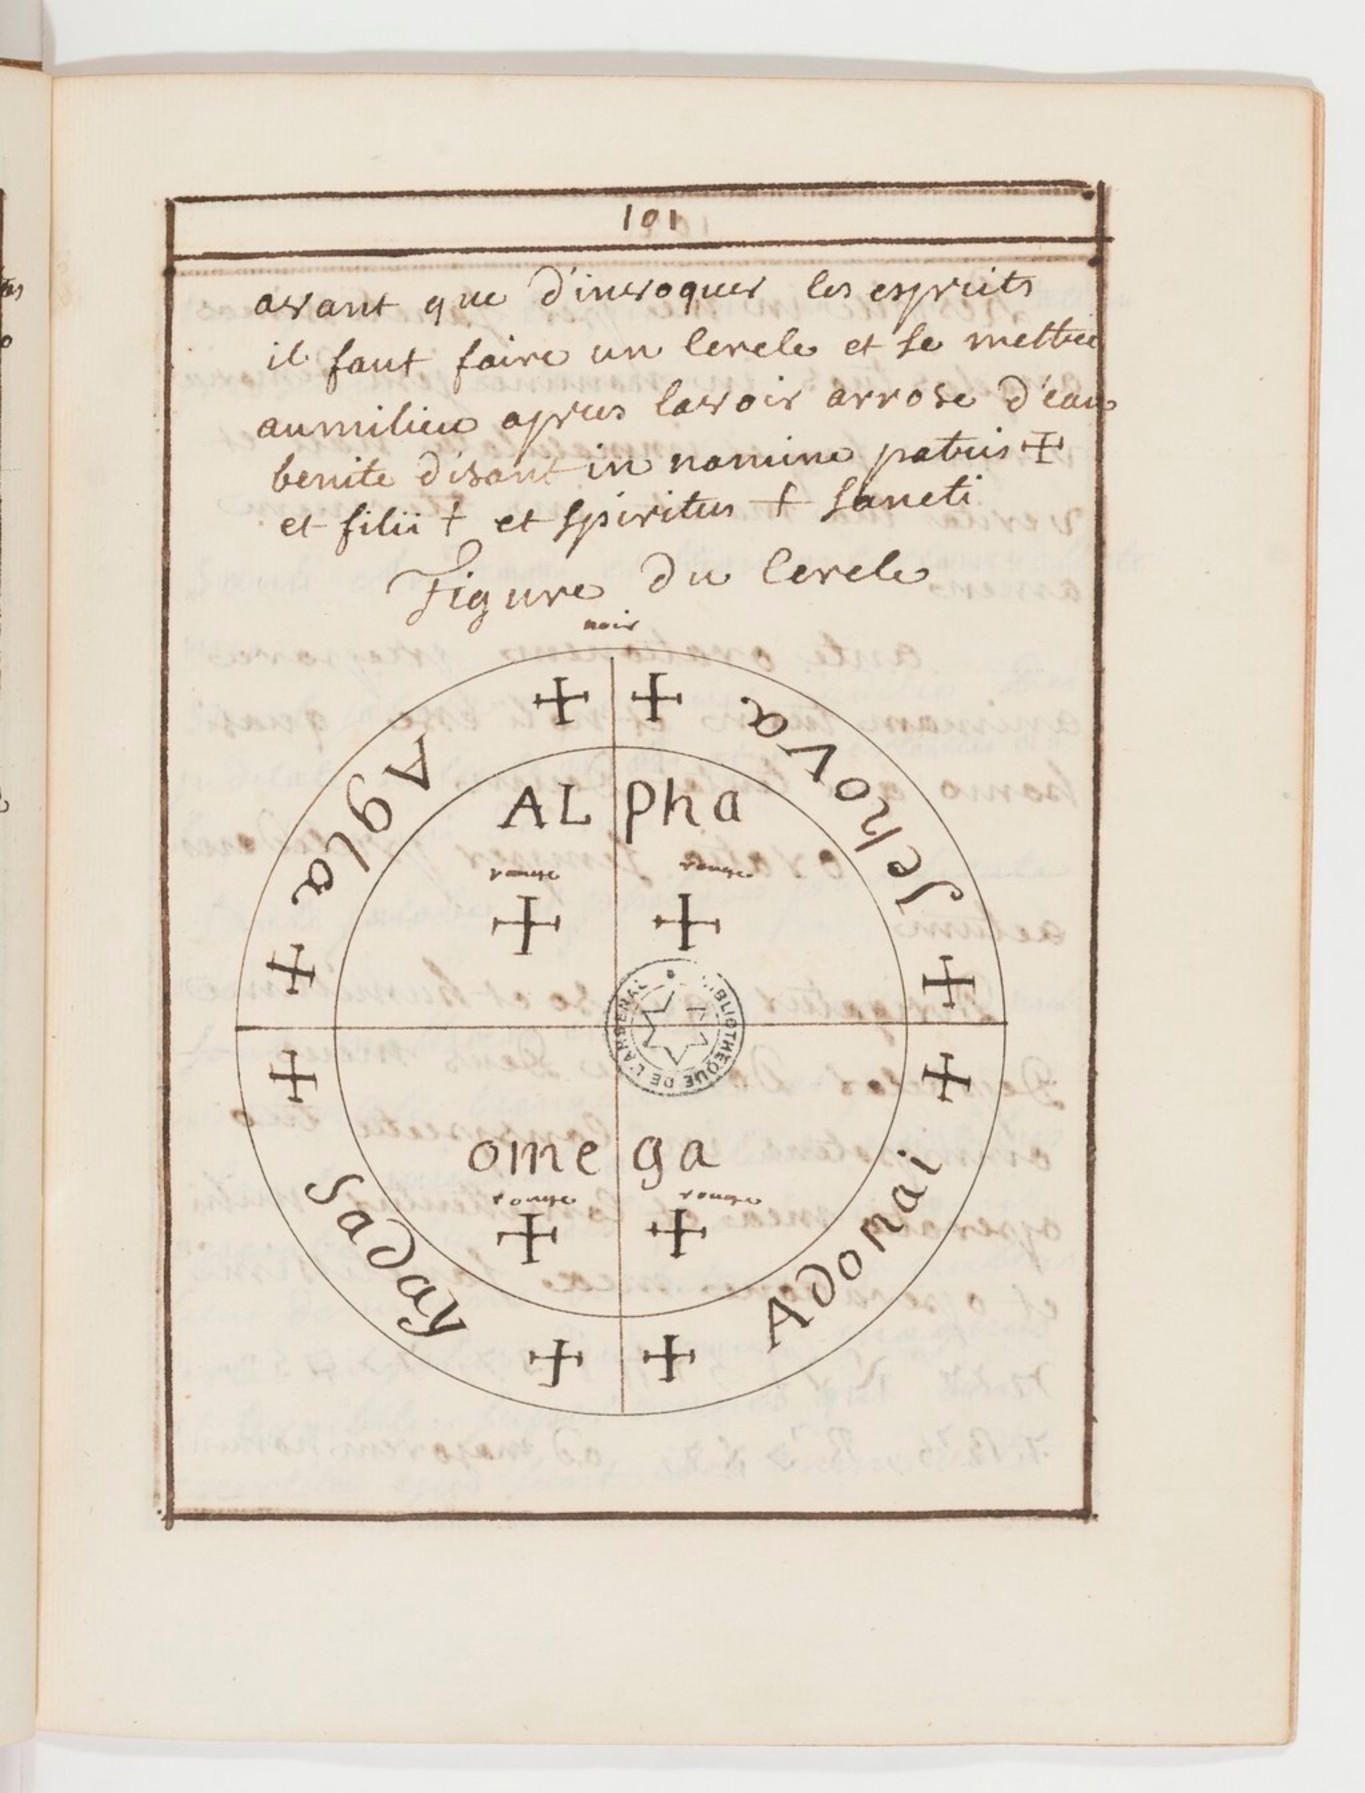 101
avant que d'invoquer les esprits
il faut faire un Cercle et se mettre
aumilieu apres lavoir arrose d'eau
benite disant in nomine patris ✠
et filii † et spiritus † Sancti
Figure du Cercle
noir
✠ ✠
Agla ✠
Jehova ✠
ALpha
rouge rouge
✠ ✠
BIBLIOTHEQUE DE L'ARSENAL
✠ ✠
omega
rouge rouge
✠ ✠
Saday
Adonai
✠ ✠